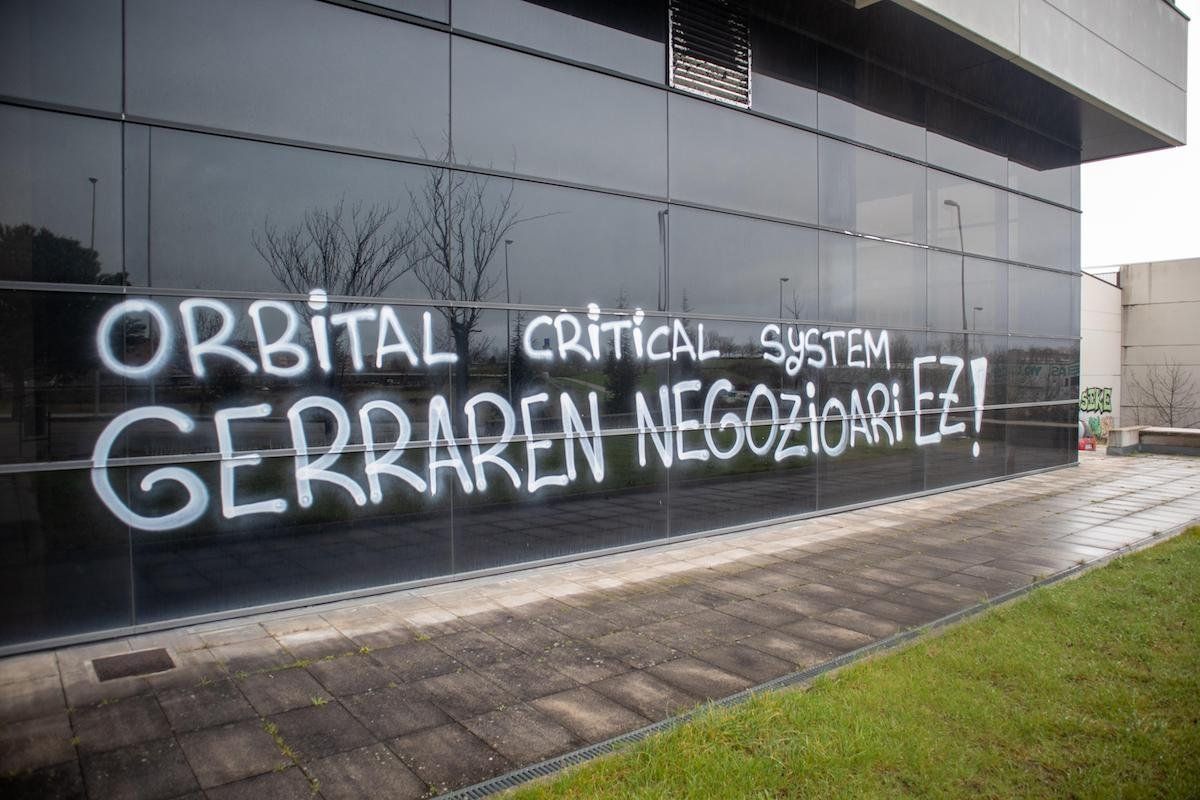 ORBiTAL CRiTiCAL SySTEM
GERRAREN NEGOZiOARi EZ!
SEKE